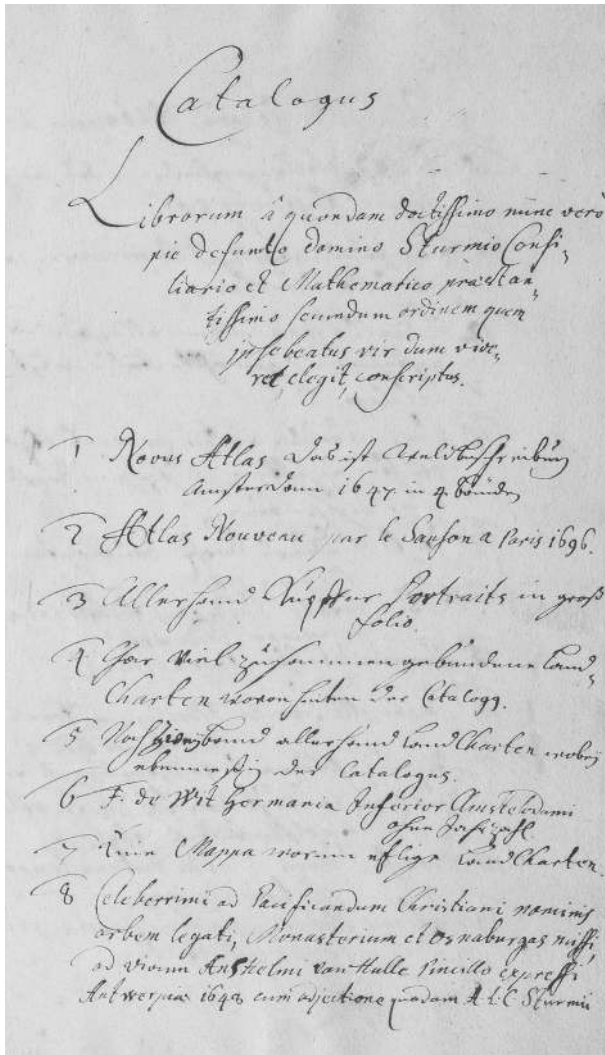 Catalogus
Librorum â quondam doctissimo nunc vero
pie defuncto domino Sturmio Consi-
liario et Mathematico præstan-
tissimo secundum ordinem quem
ipse beatus vir dum vive-
ret, elegit, conscriptus.
1 Novus Atlas das ist Weldbeschreibung
Amsterdam 1647. in 4 bänden
2 Atlas Nouveau par le Sanson a Paris 1696.
3 Allerhand Kupffer Portraits in groß
folio.
4 Gar viel zusammen gebundene Land-
Charten woran hinten der Catalogg.
5 Noch band allerhand Land Charten wobey
ebenmeßig der Catalogus.
6 F. de Wit Germania Inferior Amstelodami
ohne Jahrzahl
7 Eine Mappa worinn etlige Land Charten.
8 Celeberrimi ad Pacificandum Christiani nominis
orbem legati, Monasterium et Osnaburgas missi,
ad vivum Anshelmi van Hulle Pincillo expressi
Antwerpiæ 1648 cum adjectione quadam A. L. C. Sturmii